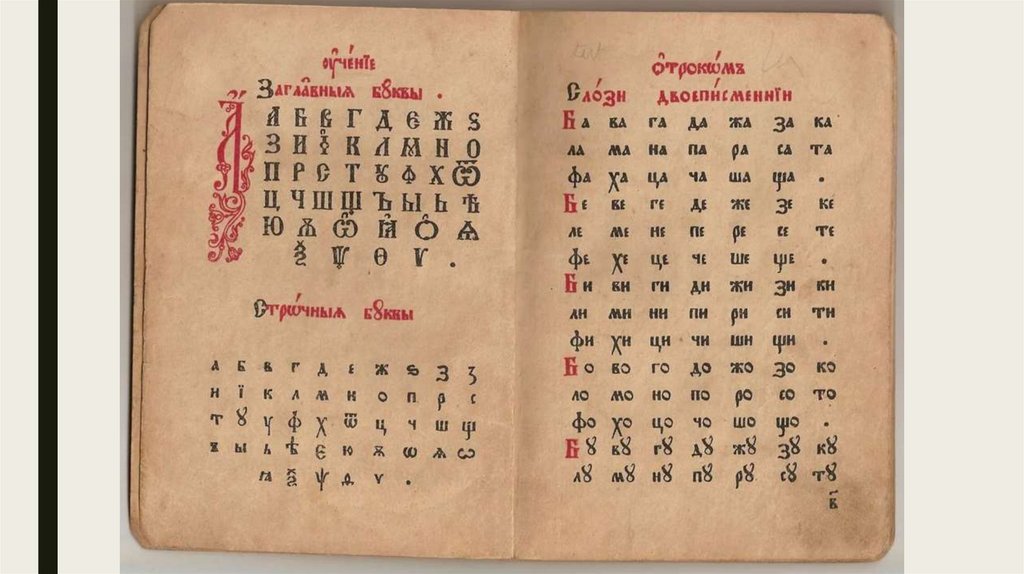 ᲂу҆че́нїе
Загла̑вныѧ бꙋквы .
А Б В Г Д Є Ж Ѕ
З И І К Л М Н О
П Р С Т Ꙋ Ф Х Ѿ
Ц Ч Ш Щ Ъ Ы Ь Ѣ
Ю Ѫ Ѽ Ꙗ Ѻ Ѧ
Ѯ Ѱ Ѳ Ѵ .
Стро́чныѧ бꙋквы
а б в г д е ж ѕ з ӡ
и ї к л м н о п р с
т ꙋ у ф х ѿ ц ч ш щ
ъ ы ь ѣ є ю ѫ ѡ ѧ ѡ
ꙗ ѯ ѱ ѳ ѵ .
ѻ҆трокѡ́мъ
Сло́зи двоепи́сменнїи
Ба ва га да жа за ка
ла ма на па ра са та
фа ха ца ча ша ща .
Бе ве ге де же зе ке
ле ме не пе ре се те
фе хе це че ше ще .
Би ви ги ди жи зи ки
ли ми ни пи ри си ти
фи хи ци чи ши щи .
Бо во го до жо зо ко
ло мо но по ро со то
фо хо цо чо шо що .
Бꙋ вꙋ гꙋ дꙋ жꙋ зꙋ кꙋ
лꙋ мꙋ нꙋ пꙋ рꙋ сꙋ тꙋ
в҃